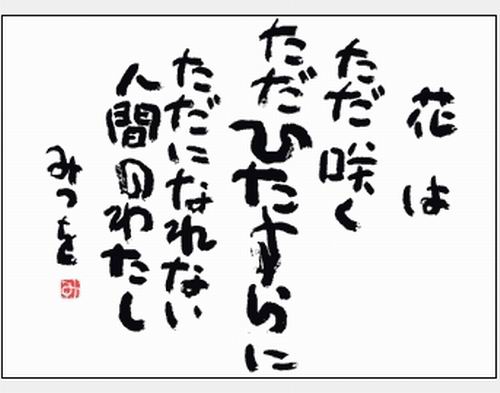 花は
ただ咲く
ただひたすらに
ただになれない
人間のわたし
みつを
み